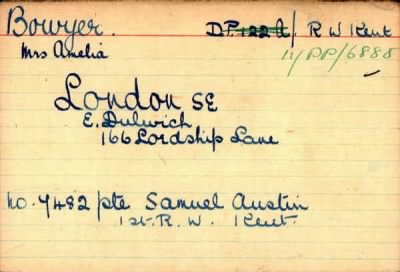 Bowyer. DP 122 A/ R W Kent
Mrs Amelia 11/PP/6885
London SE
E. Dulwich
166 Lordship Lane
No. 7482 Pte Samuel Austin
1st. R. W. Kent.